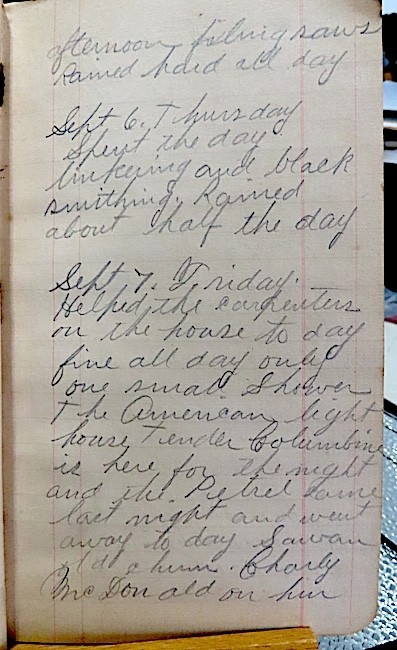 afternoon filing saws
Rained hard all day
Sept 6. Thursday
Spent the day
tinkering and black
smithing. Rained
about half the day
Sept 7. Friday.
Helped the carpenters
on the house to day
fine all day only
one small Shower
The American light
house Tender Columbine
is here for the night
and the Petrel came
last night and went
away to day Sawan
old chum. Charly
McDonald on him